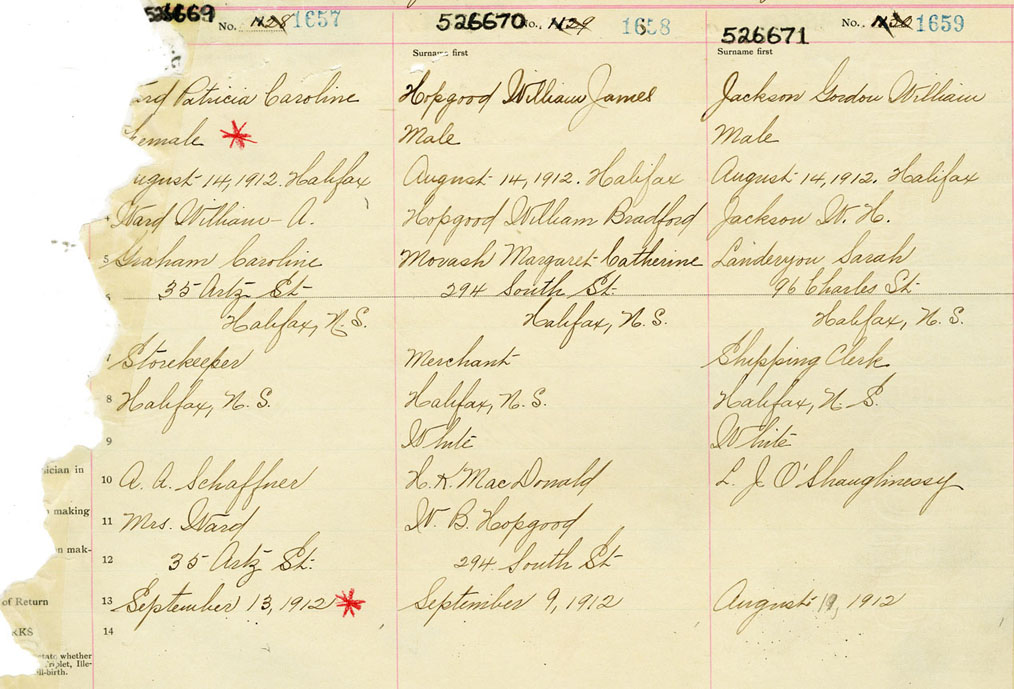 526669 No. 1657
526670 No. N29 1658
526671 No. 1659
Surname first
Surname first
Patricia Caroline
Female
August 14, 1912. Halifax
Ward William A.
5 Graham Caroline
35 Artz St.
Halifax, N.S.
Storekeeper
8 Halifax, N.S.
9
10 A. A. Schaffner
11 Mrs. Ward
12 35 Artz St.
13 September 13, 1912
14
Hopgood William James
Male
August 14, 1912. Halifax
Hopgood William Bradford
Movash Margaret Catherine
294 South St.
Halifax, N.S.
Merchant
Halifax, N.S.
White
H. K. MacDonald
W. B. Hopgood
294 South St.
September 9, 1912
Jackson Gordon William
Male
August 14, 1912. Halifax
Jackson W. H.
Landeryou Sarah
96 Charles St.
Halifax, N.S.
Shipping Clerk
Halifax, N.S.
White
L. J. O'Shaughnessy
August 19, 1912
sician in
making
n mak-
of Return
RKS
state whether
Triplet, Ille-
ill-birth.